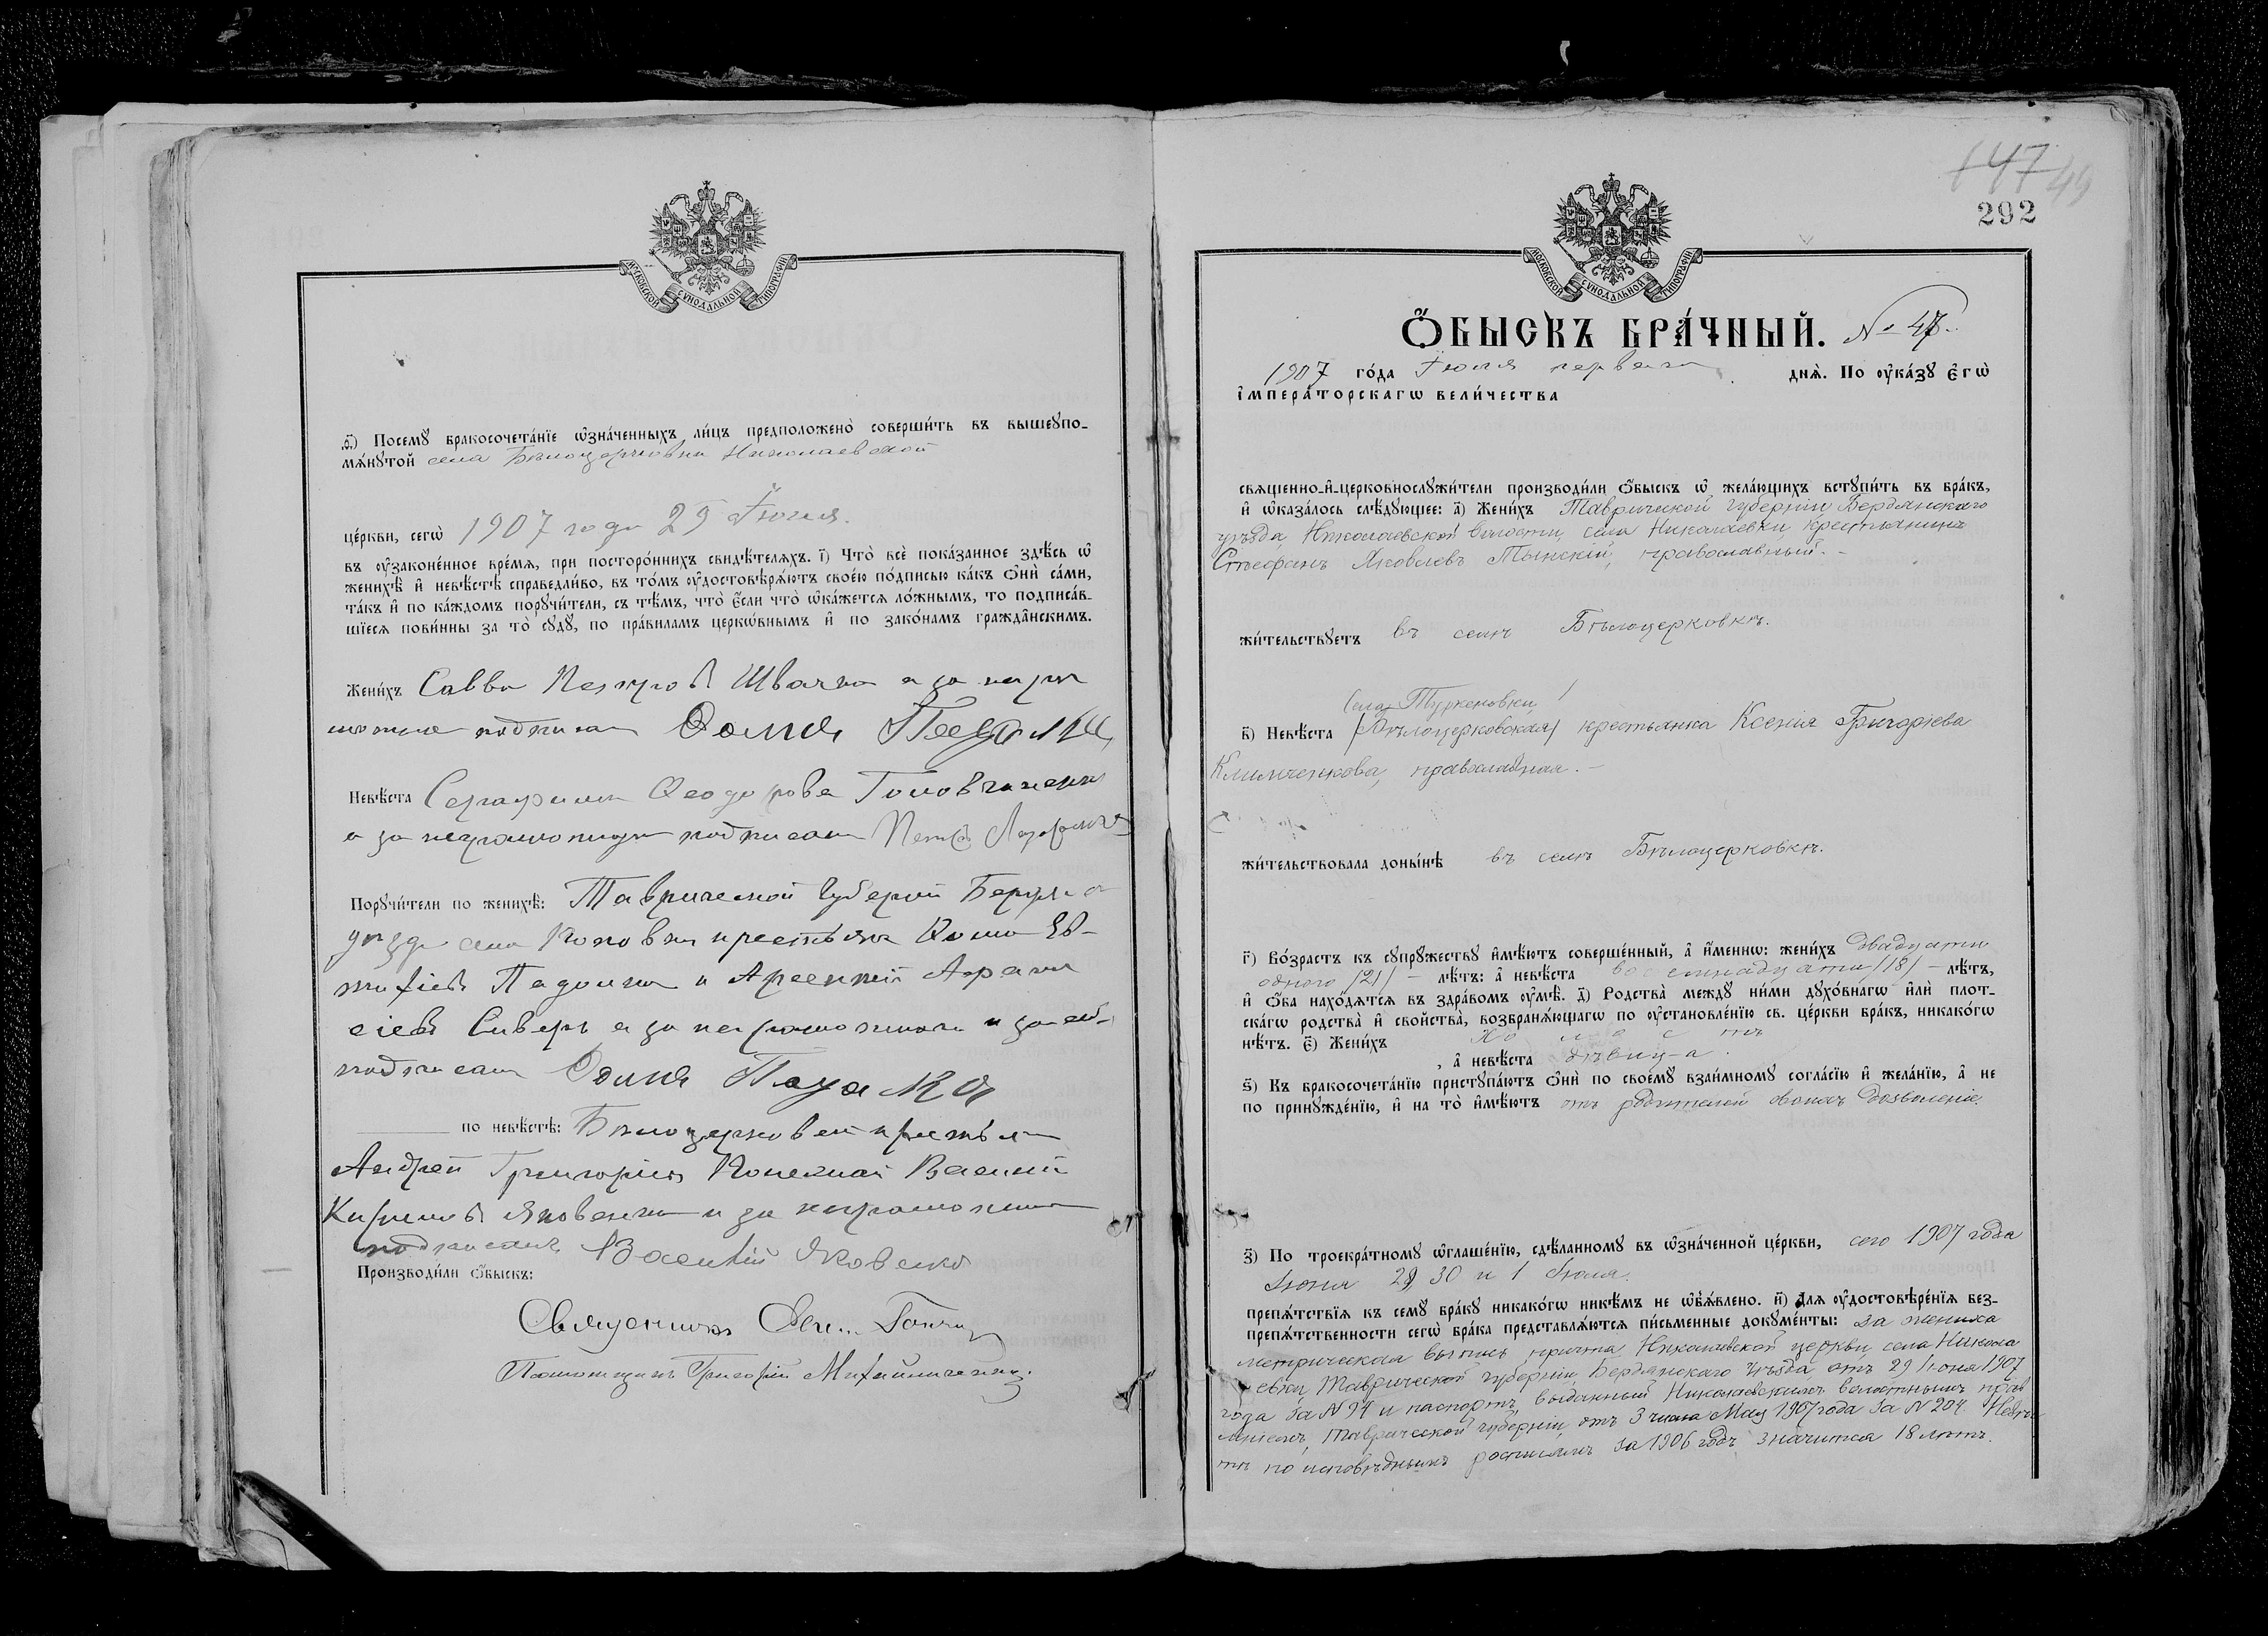 МОСКОВСКОЙ СѴНОДАЛЬНОЙ ТИПОГРАФІИ
ѳ҃) Посемꙋ̀ бракосочета́нїе ѡ҆зна́ченныхъ ли́цъ предположено̀ соверши́ть въ вышеꙋпо-
мѧ́нꙋтой села Бѣлоцерковки Николаевской
це́ркви, сегѡ̀ 1907 года 29 Іюня.
въ ᲂу҆зако́ненное вре́мѧ, при посторо́ннихъ свидѣ́телѧхъ. і҃) Что̀ всѐ пока́занное здѣ́сь ѡ҆
женихѣ̀ и҆ невѣ́стѣ справедли́во, въ то́мъ ᲂу҆достовѣрѧ́ютъ свое́ю по́дписью ка́къ ѻ҆нѝ са́ми,
та́къ и҆ по ка́ждомъ порꙋчи́тели, съ тѣ́мъ, что̀ є҆́сли что̀ ѡ҆ка́жетсѧ ло́жнымъ, то подписа́в-
шїесѧ пови́нны за то̀ сꙋдꙋ̀, по пра́виламъ церкѡ́внымъ и҆ по зако́намъ гражда̑нскимъ.
Жени́хъ Савва Петровъ Швачка а за негра
мотнаго подписал Ѳома
Невѣ́ста Серафима Ѳеодорова
а за неграмотную подписалъ Петръ
Порꙋчи́тели по женихѣ̀: Таврической Губерніи Бердян
уѣзда села крестьяне Ѳома Ев-
тихіевъ и Арсеній
а за неграмотнаго и за себ
подписалъ Ѳома
по невѣ́стѣ: Бѣлоцерковски крестьян
Андрей Григоріевъ Василій
Кириловъ Яковенко и за неграмотнаго
подписалъ Василій Яковенко
Производи́ли ѻ҆́быскъ:
Священникъ
Григорій
147 49
292
МОСКОВСКОЙ СѴНОДАЛЬНОЙ ТИПОГРАФІИ
Ѻ҆́БЫСКЪ БРА́ЧНЫЙ. № 47.
1907 го́да Іюля перваго днѧ̀. По ᲂу҆ка́зꙋ є҆гѡ̀
і҆мпера́торскагѡ вели́чества
свѧщенно-и҆-церковнослꙋжи́тели производи́ли ѻ҆́быскъ ѡ҆ жела́ющихъ встꙋпи́ть въ бра́къ,
и҆ ѡ҆каза́лось слѣ́дꙋющее: а҃) Жени́хъ Таврической Губерніи Бердянскаго
уѣзда, Николаевской волости, села Николаевки, крестьянинъ
Стефанъ Яковлевъ Тынскій, православный.-
жи́тельствꙋетъ въ селѣ Бѣлоцерковкѣ.
села Туркеновки
в҃) Невѣ́ста (Бѣлоцерковская) крестьянка Ксенія Григоріева
Климченкова, православная.-
жи́тельствовала доны́нѣ въ селѣ Бѣлоцерковкѣ.
г҃) Во́зрастъ къ сꙋпрꙋ́жествꙋ и҆мѣ́ютъ соверше́нный, а҆ и҆́меннѡ: жени́хъ двадцати
одного /21/ - лѣ́тъ: а҆ невѣ́ста восемнадцати /18/ - лѣ́тъ,
и҆ ѻ҆́ба нахо́дѧтсѧ въ здра́вомъ ᲂу҆мѣ̀. д҃) Родства̀ междꙋ̀ ни́ми дꙋхо́внагѡ и҆лѝ плот-
ска́гѡ родства̀ и҆ свойства̀, возбранѧ́ющагѡ по ᲂу҆становле́нїю св. це́ркви бра́къ, никако́гѡ
нѣ́тъ. є҃) Жени́хъ холостъ
, а҆ невѣ́ста дѣвица.
ѕ҃) Къ бракосочета́нїю пристꙋпа́ютъ ѻ҆нѝ по своемꙋ̀ взаи́мномꙋ согла́сїю и҆ жела́нїю, а҆ не
по принꙋжде́нїю, и҆ на то̀ и҆мѣ́ютъ отъ родителей своихъ дозволеніе.
з҃) По троекра́тномꙋ ѡ҆глаше́нїю, сдѣ́ланномꙋ въ ѡ҆зна́ченной це́ркви, сего 1907 года
Іюня 29, 30 и 1 Іюля.
препѧ́тствїѧ къ семꙋ̀ бра́кꙋ никако́гѡ никѣ́мъ не ѡ҆б̾ѧ́влено. и҃) Длѧ ᲂу҆достовѣре́нїѧ без-
препѧ́тственности сегѡ̀ бра́ка представлѧ́ютсѧ пи́сьменные докꙋме́нты: за жениха
метрическая выпись причта Николаевской церкви села Никола
евки, Таврической губерніи, Бердянскаго уѣзда, отъ 29 Іюня 1907
года за № 94 и паспортъ, выданный Николаевскимъ волостнымъ прав
леніемъ, Таврической губерніи, отъ 3 числа Мая 1907 года за № 204. Невѣс
тѣ по исповѣднымъ росписямъ за 1906 годъ значится 18 лѣтъ.